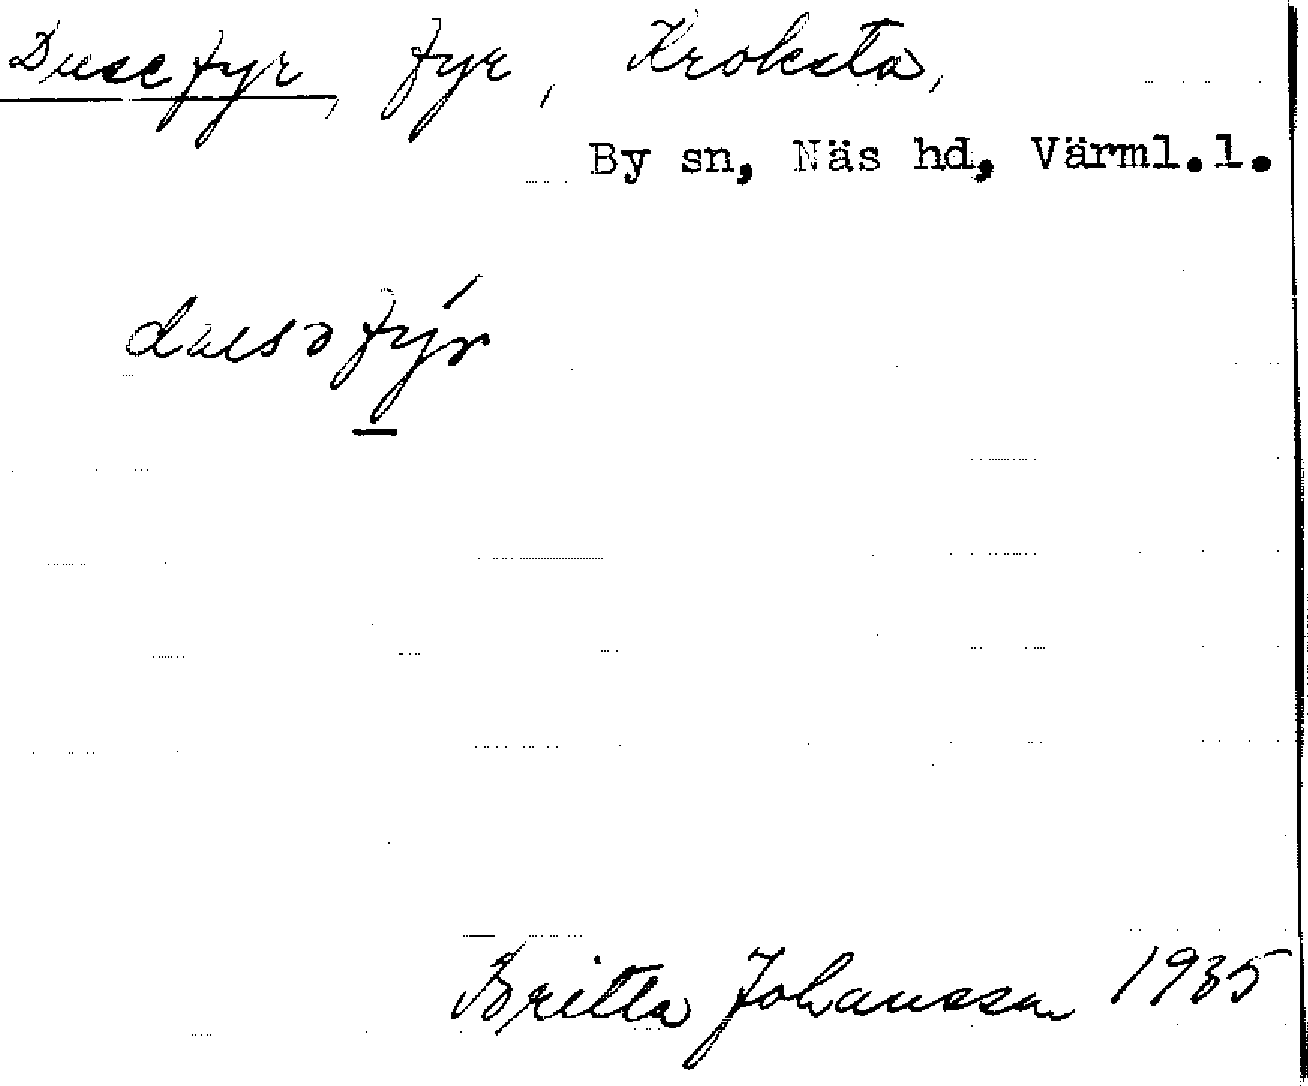 Duse fyr, fyr, Kroksta,
By sn, Näs hd, Värml.l.
Britta Johansson 1935